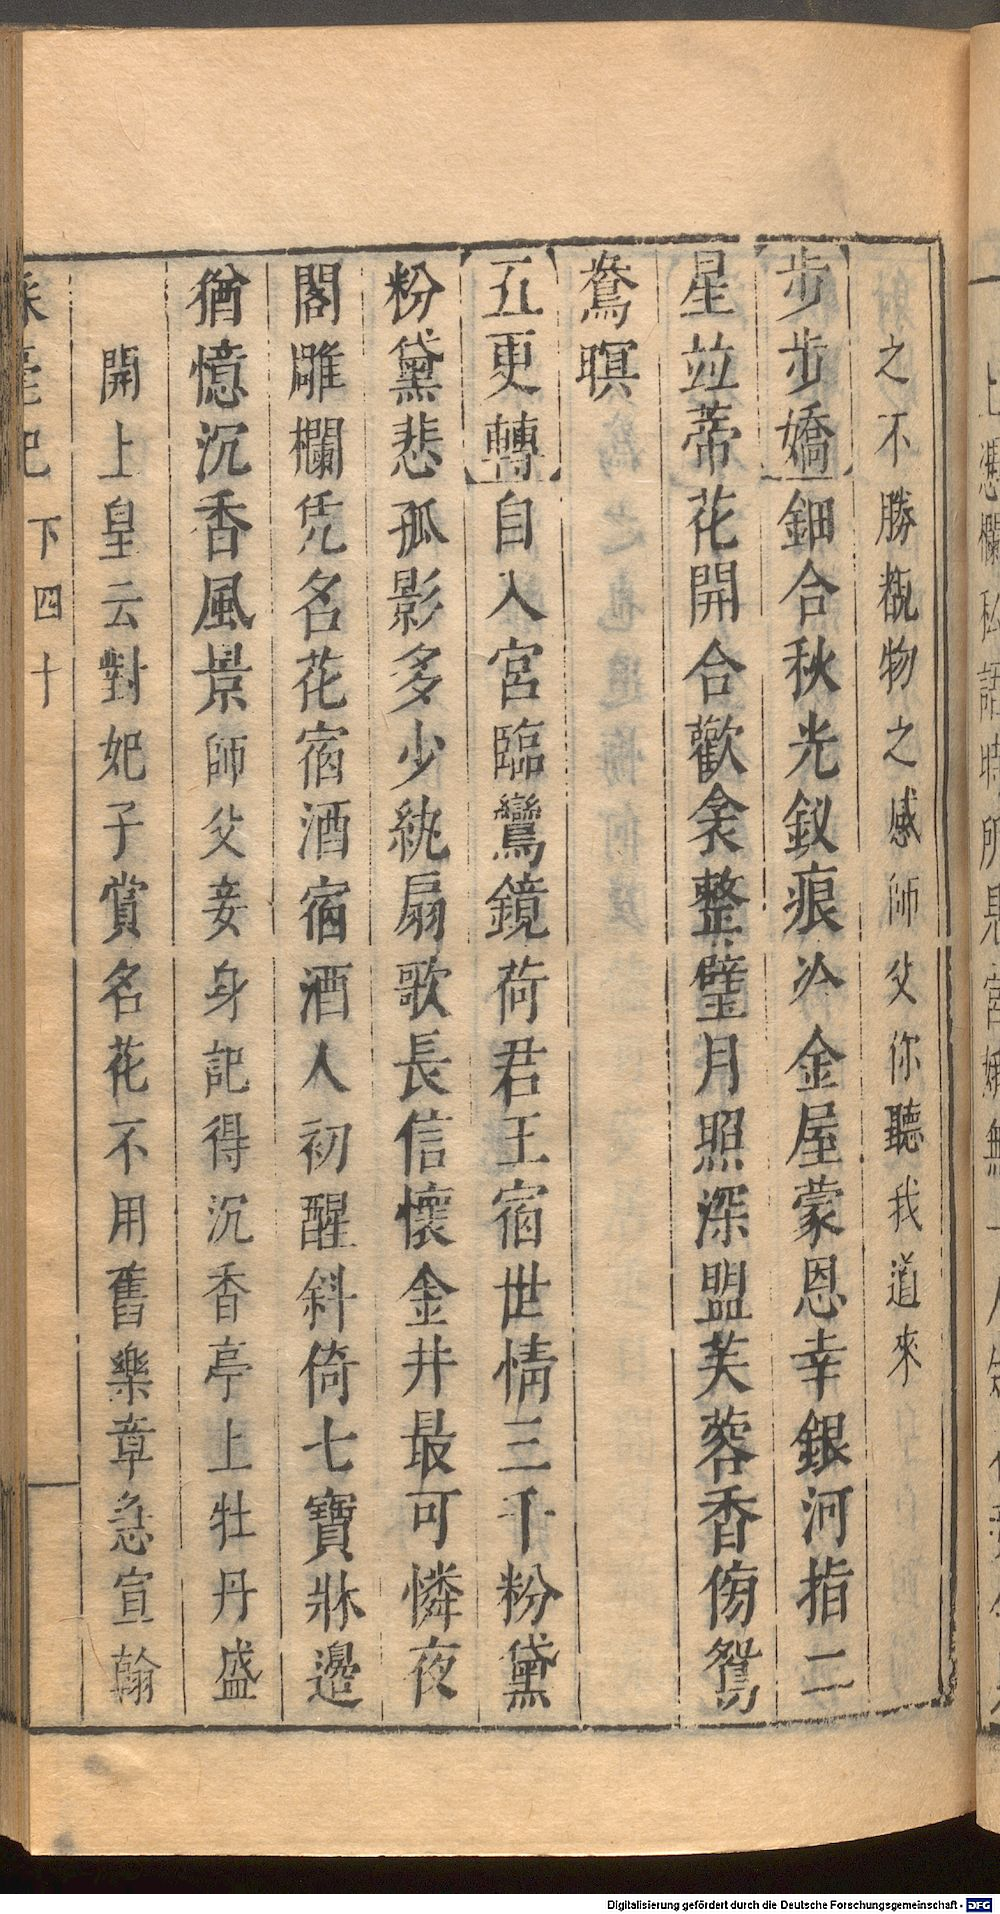 之不勝覩物之感師父你聽我道來
步步嬌鈿合秋光釵痕冷金屋蒙恩幸銀河指二
星竝蒂花開合歡衾整璧月照深盟芙蓉香傍鴛
鴦暝
五更轉自入宮臨鸞鏡荷君王宿世情三千粉黛
粉黛悲孤影多少紈扇歌長信懷金井最可憐夜
閣雕欄凭名花宿酒宿酒人初醒斜倚七寶牀邊
猶憶沉香風景師父妾身記得沉香亭上牡丹盛
開上皇云對妃子賞名花不用舊樂章急宣翰
下四十
Digitalisierung gefördert durch die Deutsche Forschungsgemeinschaft - DFG